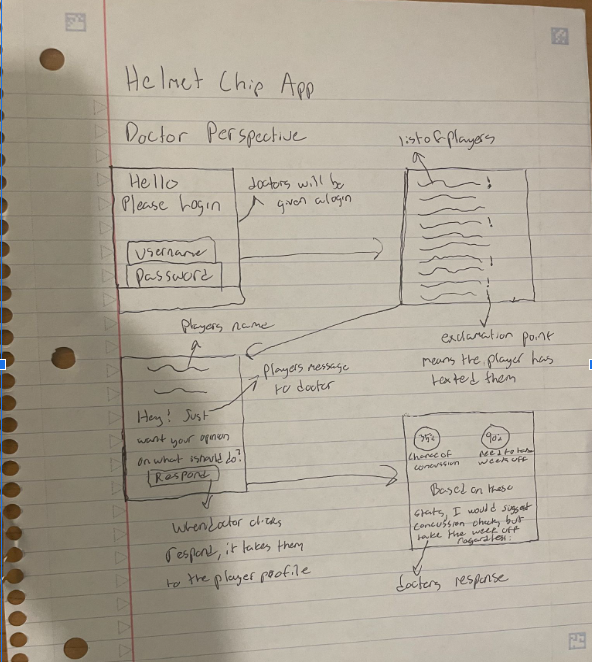 Helmet Chip App
Doctor Perspective
list of players
Hello
Please Login
username
password
doctors will be
given a login
!
!
!
!
exclamation point
means the player has
texted them
Players name
players message
to doctor
Hey! Just
want your opinion
on what I should do?
Respond
When doctor clicks
respond, it takes them
to the player profile
75%
Chance of
concussion
90%
need to take
week off
Based on these
stats, I would suggest
concussion checks but
take the week off
regardless.
doctors response